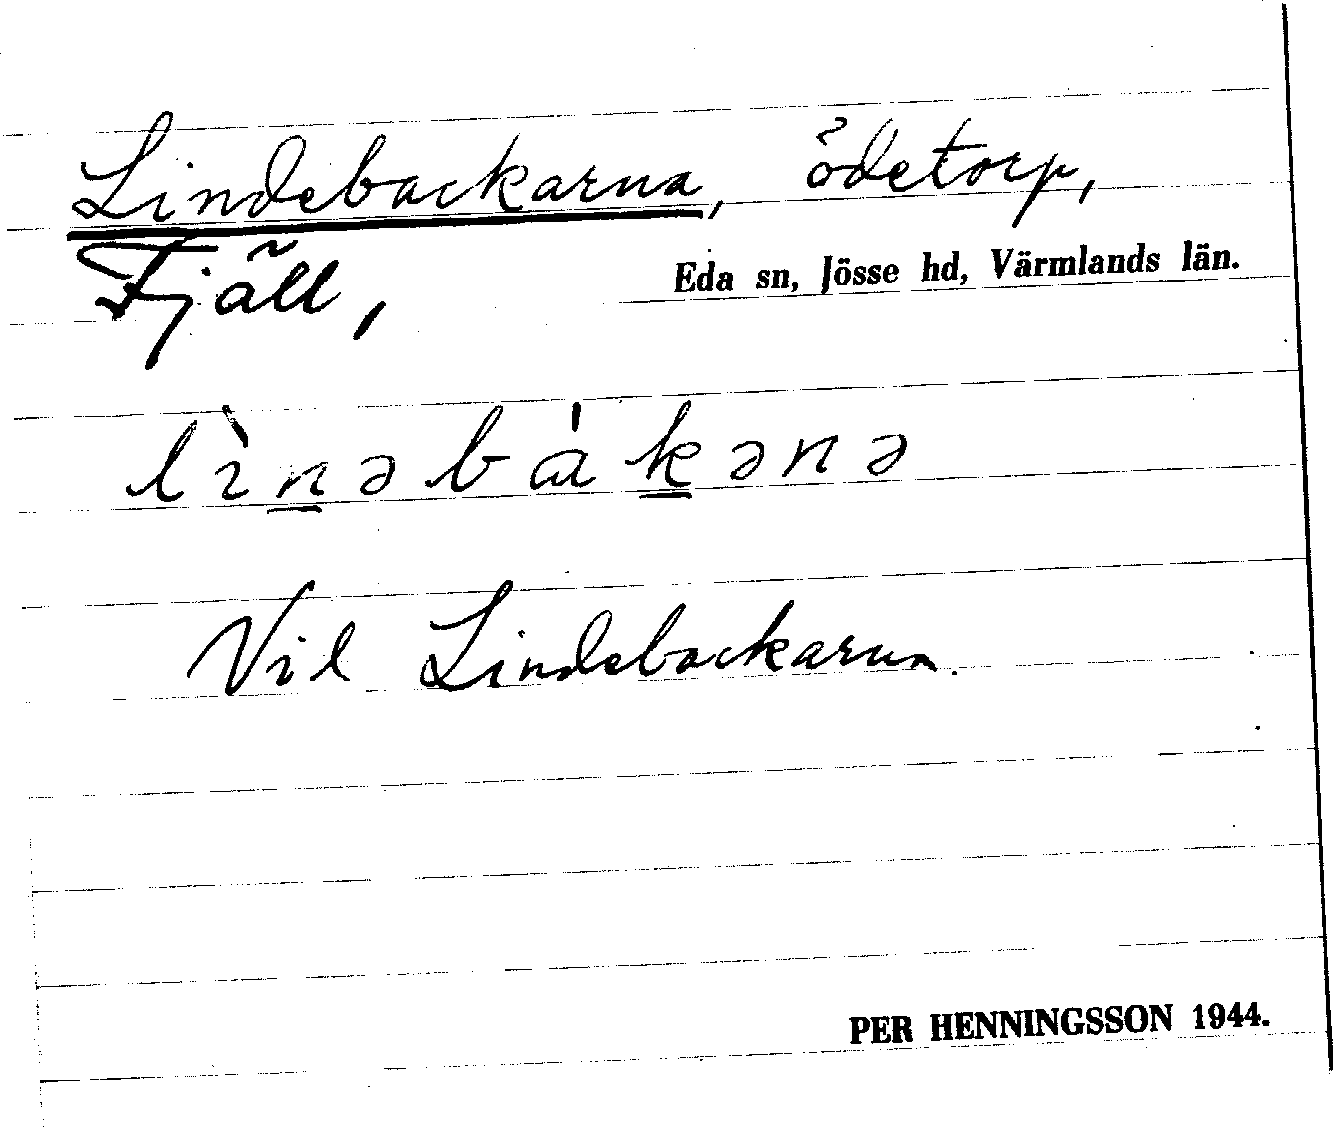 Lindebackarna, ödetorp,
Fjäll,
Eda sn, Jösse hd, Värmlands län.
lìnəbàkənə
Vid Lindebackarna.
PER HENNINGSSON 1944.